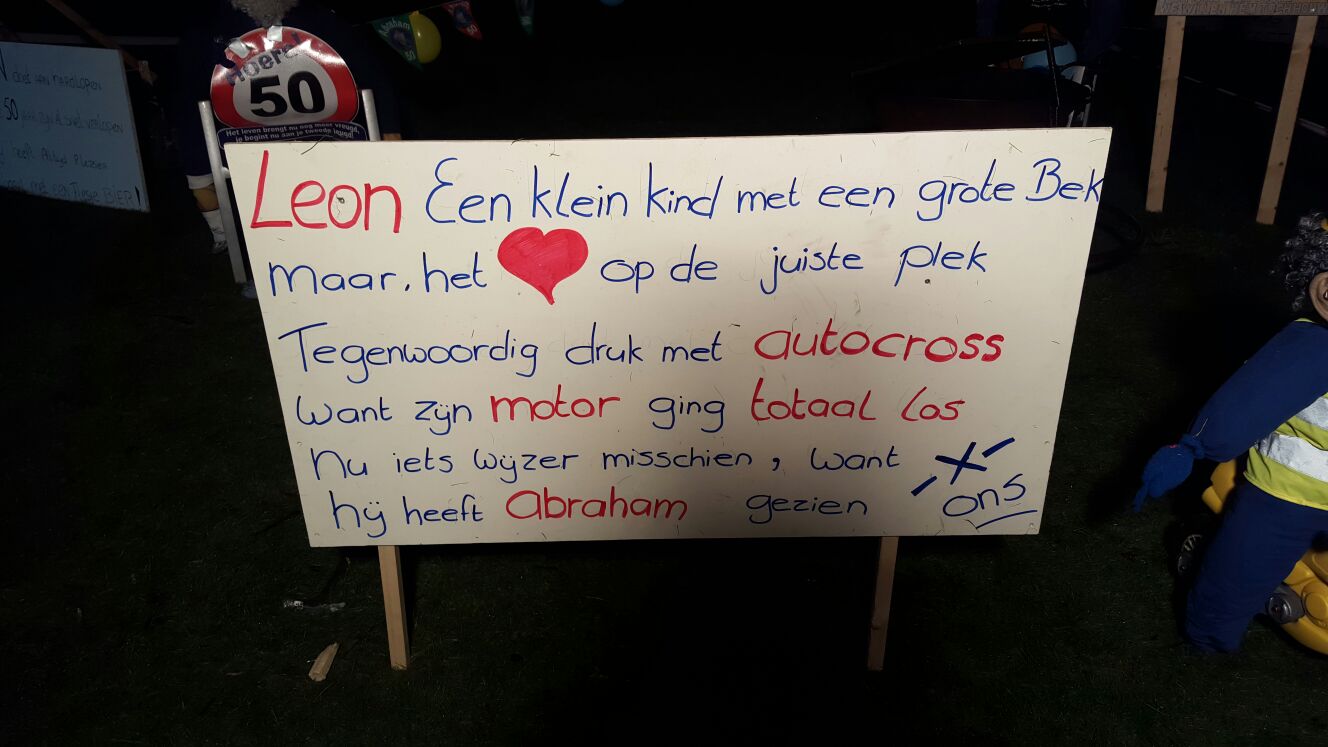 Hoera!
50
Het leven brengt nu nog meer vreugd,
je begint nu aan je tweede jeugd!
Abraham
50
50
50
Leon Een klein kind met een grote Bek
maar, het ❤ op de juiste plek
Tegenwoordig druk met autocross
want zijn motor ging totaal los
Nu iets wijzer misschien, want
hij heeft abraham gezien
X
ons